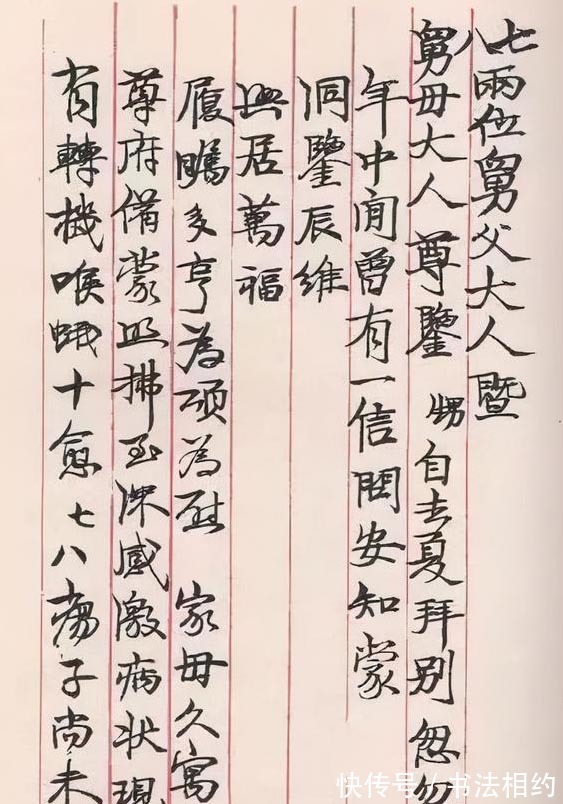 七八兩位舅父大人暨
舅毋大人尊鑒 甥自去夏拜别忽忽
年中间曾有一信問安知蒙
洞鑒辰維
興居萬福
履瞩多亨為頌為慰 家毋久寓
尊府備蒙照拂至深感激病狀現
有轉機喉蛾十愈七八瘍子尚未
快传号/书法相约